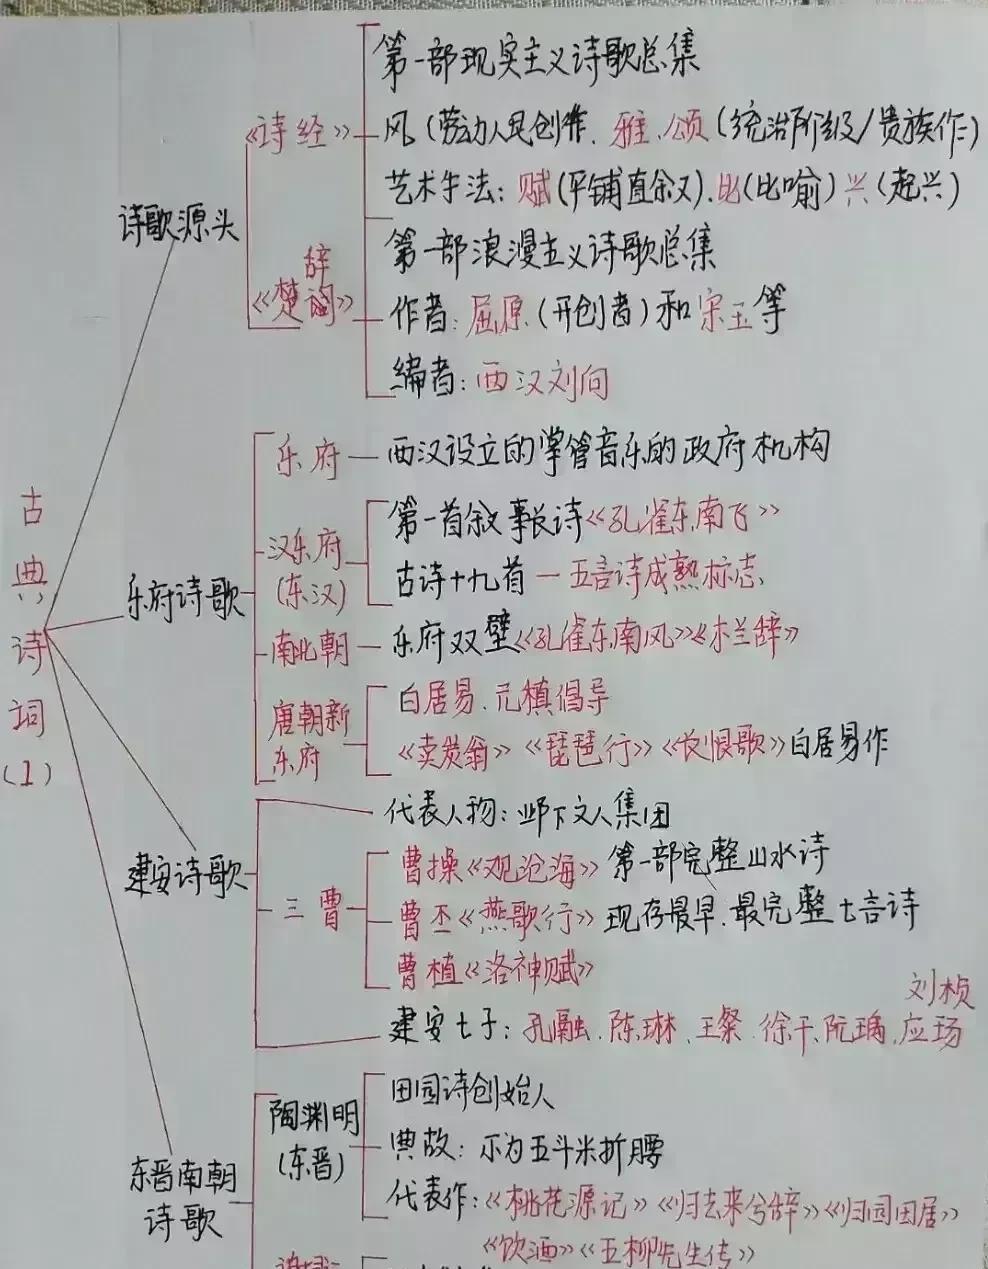 古典诗词(1)
诗歌源头
《诗经》
第一部现实主义诗歌总集
风(劳动人民创作. 雅.颂(统治阶级/贵族作)
艺术手法: 赋(平铺直叙).比(比喻)兴(起兴)
辞
《楚词》
第一部浪漫主义诗歌总集
作者: 屈原(开创者)和宋玉等
编者: 西汉刘向
乐府诗歌
乐府
西汉设立的掌管音乐的政府机构
汉乐府
(东汉)
第一首叙事长诗《孔雀东南飞》
古诗十九首 — 五言诗成熟标志
南北朝
乐府双壁《孔雀东南风》《木兰辞》
唐朝新
乐府
白居易.元稹倡导
《卖炭翁》《琵琶行》《长恨歌》白居易作
建安诗歌
代表人物: 邺下文人集团
三曹
曹操《观沧海》第一部完整山水诗
曹丕《燕歌行》现存最早.最完整七言诗
曹植《洛神赋》
刘桢
建安七子: 孔融.陈琳.王粲.徐干.阮瑀.应玚
东晋南朝
诗歌
陶渊明
(东晋)
田园诗创始人
典故: 不为五斗米折腰
代表作:《桃花源记》《归去来兮辞》《归园田居》
《饮酒》《五柳先生传》